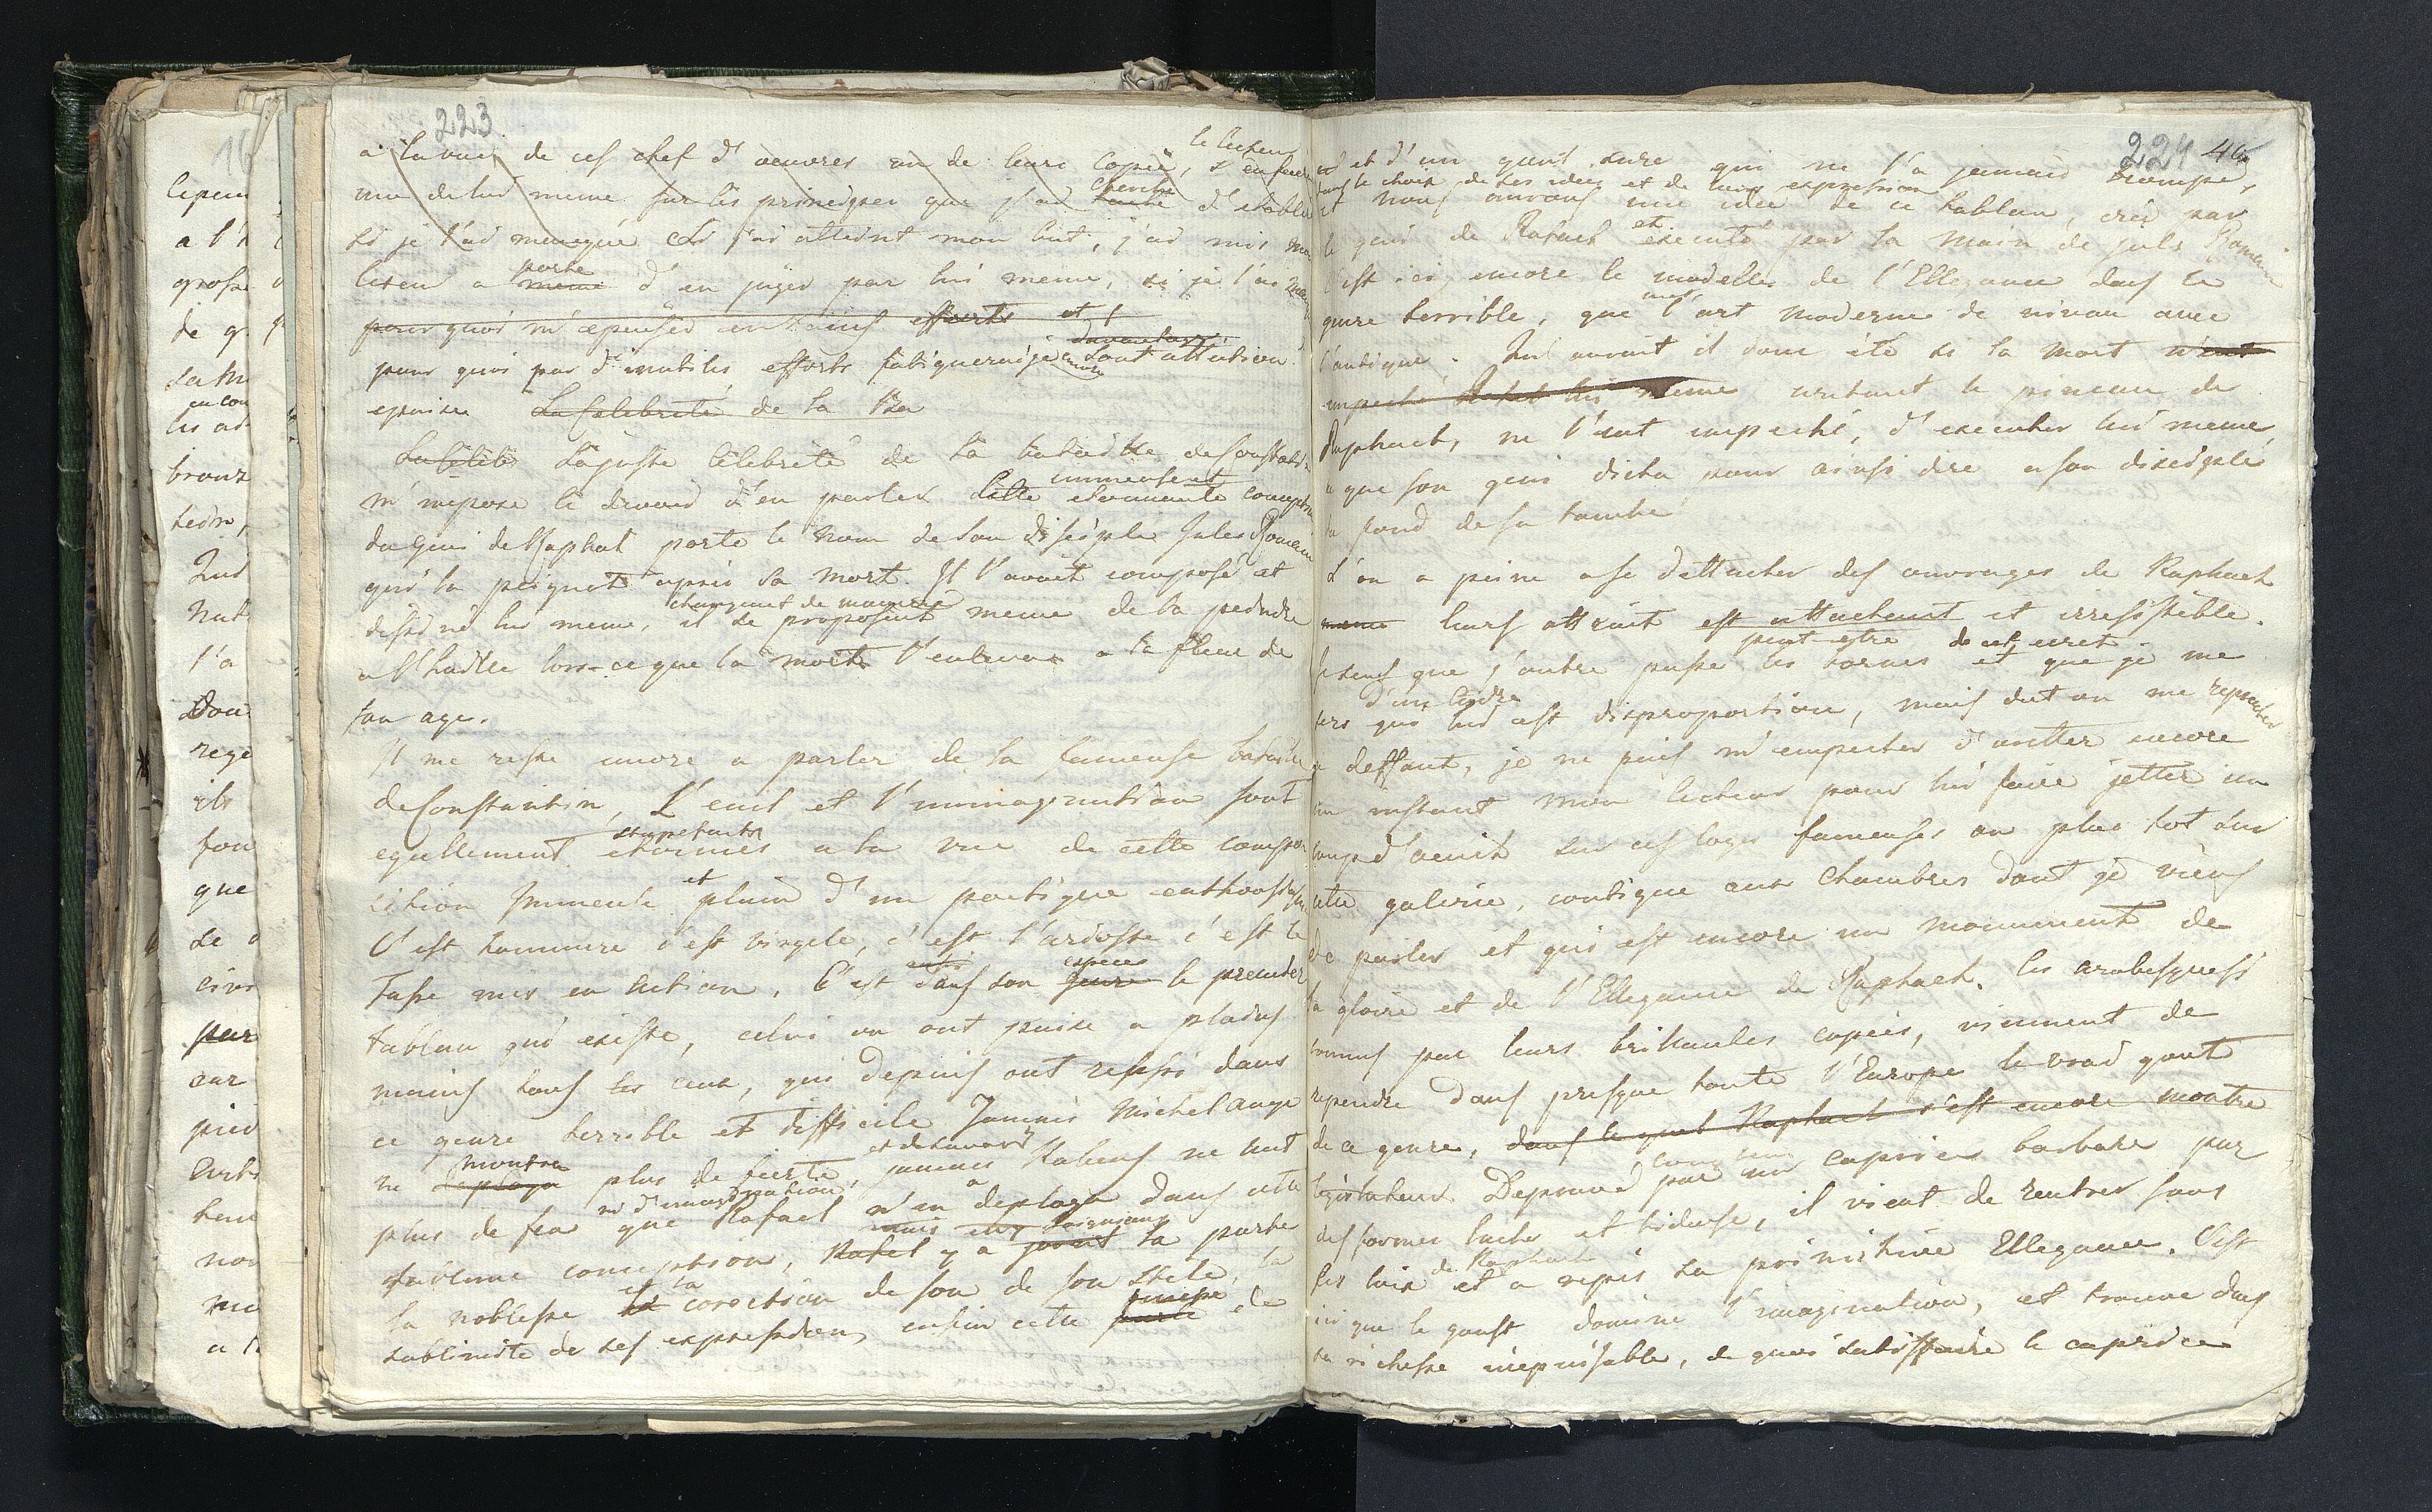 223
le lecteur
a la vue de ces chef d'oeuvres ou de leurs copies,
cherché
de lui meme sur les principes que j'ai tenté d'etablir
si je l'ai manqué Si j'ai atteint mon but, j'ai mis mon
porté
lecteur a meme d'en juger par lui meme, si je l'ai
pour quoi m'epuiser en vains efforts et
davantage
pour quoi par d'inutiles efforts fatiguerai je encore son attention
epuisée La Celebrité de la
La Celeb La juste Celebrité de la bataille de Constantin
immense et
m'impose le devoir d'en parler Cette etonnante conception
du genie de Raphael porte le nom de son disciple Jules Romain
qui la peignit apres sa mort. Il l'avait composé et
changeant de maniere
dessiné lui meme, il se proposait meme de la peindre
a l'huille lors-ce que la mort l'enleva a la fleur de
son age.
Il me reste encore a parler de la fameuse bataille
de Constantin, L'oeuil et l'immagination sont
stupefaits
egallement etonnés a la vue de cette compo
et
sition immense plein d'un poetique enthousiasme
C'est hommere c'est virgile, c'est l'arioste c'est le
espece
Tasse mis en action. C'est dans son genre le premier
tableau qui existe, celui ou ont puisé a pleins
mains tous les ceux, qui depuis ont reussi dans
ce genre terrible et difficile Jammais Michel ange
montra
ne deploya plus de fierté, et de savoir jammais Rubens ne mit
ni d'immagination
plus de feu que Rafael n'en a deployé dans cette
mais
sublime conception, Rafael y a joint la pureté
et la
la noblesse la corection de son de son stile, la
sublimité de ses expressions, enfin cette de
224 46
et d'un gout sure qui ne l'a jamais trompé,
dans le choix de ses idées et de leurs expression
et nous aurons une idée de ce tableau, crée par
et
le genie de Rafael executé par la main de Jule Romain
C'est ici, encore le modelle de l'Ellegance dans le
met
genre terrible, que l'art moderne de niveau avec
l'antique. Qui auroit il donc été si la mort n'eut
empeché Rafael lui meme arretant le pinceau de
Raphael, ne l'eut empeché, d'executer lui meme,
ce que son genie dicta pour ainsi dire a son disciple
du fond de sa tombe
L'on a peine ose d'ettacher des ouvrages de Raphael
leurs attrait est attachant et irresistible.
peut etre de cet ecrit
Je sens que j'outre passe les bornes et que je me
d'une
sers qui lui est disproportion, mais dut on me reprocher
ce deffaut, je ne puis m'empecher d'aretter encore
un instant mon lecteur pour lui faire jetter un
coup d'oeuil sur ces loges fameuses ou plus tot sur
cette galerie, contigue aux chambres dont je viens
de parler et qui est encore un monument de
la gloire et de l'Ellegance de Raphael. les arabesques
connus par leurs brillantes copies, viennent de
rependre dans presque toute l'Europe le vrai gout
de ce genre, dans le quel Raphael s'est encore montré
legislateur. Depravé par un caprice barbare par
des formes laches et hideuse, il vient de rentrer sous
de Raphael
les loix et a repris sa primitive Ellegance. C'est
ici que le goust domine l'imagination, et trouve dans
sa richesse inepuisable, de quoi satisffaire le caprice